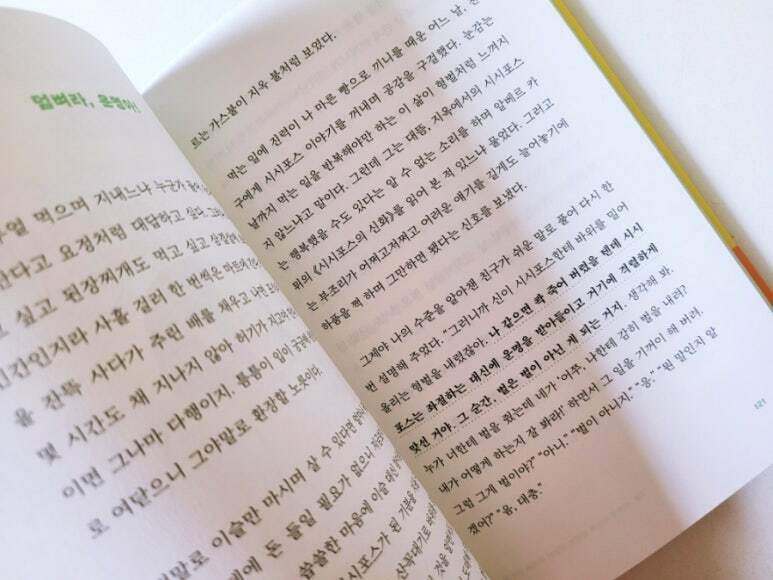 덤벼라, 운명아!
먹으며 지내느냐 누군가
한다고 요정처럼 대답하고 싶다.
싶고 된장찌개도 먹고 싶고 삼겹살
인간인지라 사흘 걸러 한 번씩은 마트에
을 잔뜩 사다가 주린 배를 채우고 나면
몇 시간도 채 지나지 않아 허기가 지고
이면 그나마 다행이지, 틈틈이 입이 궁금해
로 여닫으니 그야말로 환장할 노릇이다.
말로 이슬만 마시며 살 수 있다면
에 돈 들일 필요가 없으니
씁쓸한 마음에 이슬 대신
시시포스가 된 기분을
산꼭대기로
르는 가스불이 지옥 불처럼 보였다.
먹는 일에 진력이 나 마른 빵으로 끼니를 때운 어느 날, 친
구에게 시시포스 이야기를 꺼내며 공감을 구걸했다. 눈감는
날까지 먹는 일을 반복해야만 하는 이 삶이 형벌처럼 느껴지
지 않느냐고 말이다. 그런데 그는 대뜸, 지옥에서의 시시포스
는 행복했을 수도 있다는 알 수 없는 소리를 하며 알베르 카
뮈의 《시시포스의 신화》를 읽어 본 적 있느냐 물었다. 그리고
는 부조리가 어쩌고저쩌고 어려운 얘기를 길게도 늘어놓기에
하품을 쩍 하며 그만하면 됐다는 신호를 보냈다.
그제야 나의 수준을 알아챈 친구가 쉬운 말로 풀어 다시 한
번 설명해 주었다. “그러니까 신이 시시포스한테 바위를 밀어
올리는 형벌을 내렸잖아. 나 같으면 콱 죽어 버렸을 텐데 시시
포스는 좌절하는 대신에 운명을 받아들이고 거기에 격렬하게
맞선 거야. 그 순간, 벌은 벌이 아닌 게 되는 거지. 생각해 봐.
누가 너한테 벌을 줬는데 네가 ‘어쭈, 나한테 감히 벌을 내려?
내가 어떻게 하는지 잘 봐라!’ 하면서 그 일을 기꺼이 해 버려.
그럼 그게 벌이야?” “아니.” “벌이 아니지?” “응.” “뭔 말인지 알
겠어?” “응, 대충.”
121